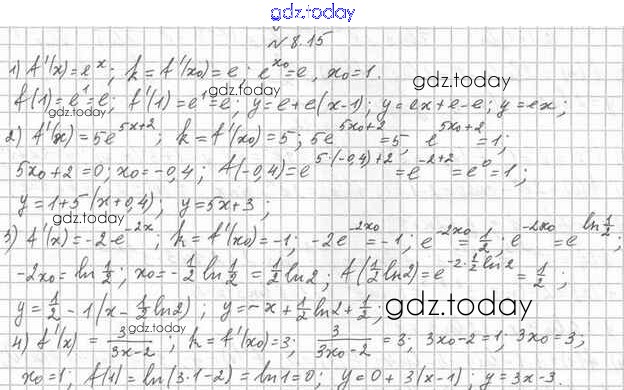 gdz.today
№ 8.15
1) f'(x)=eˣ; k=f'(x₀)=e; eˣ⁰=e, x₀=1.
gdz.today
f(1)=e¹=e; f'(1)=e¹=e; y=e+e(x-1); y=ex+e-e; y=ex;
gdz.today
2) f'(x)=5e⁵ˣ⁺²; k=f'(x₀)=5; 5e⁵ˣ⁰⁺²=5, e⁵ˣ⁰⁺²=1;
gdz.today
5x₀+2=0; x₀=-0,4; f(-0,4)=e⁵·⁽⁻⁰,⁴⁾⁺²=e⁻²⁺²=e⁰=1;
gdz.today
y=1+5(x+0,4); y=5x+3;
gdz.today
3) f'(x)=-2·e⁻²ˣ; k=f'(x₀)=-1; -2e⁻²ˣ⁰=-1; e⁻²ˣ⁰=1/2; e⁻²ˣ⁰=e^(ln 1/2);
-2x₀=ln 1/2; x₀=-1/2 ln 1/2=1/2 ln2; f(1/2 ln2)=e^(-2·1/2 ln2)=1/2;
y=1/2-1(x-1/2 ln2); y=-x+1/2 ln2+1/2;
gdz.today
4) f'(x)=3/(3x-2); k=f'(x₀)=3; 3/(3x₀-2)=3; 3x₀-2=1, 3x₀=3;
gdz.today
x₀=1; f(1)=ln(3·1-2)=ln1=0; y=0+3(x-1); y=3x-3.